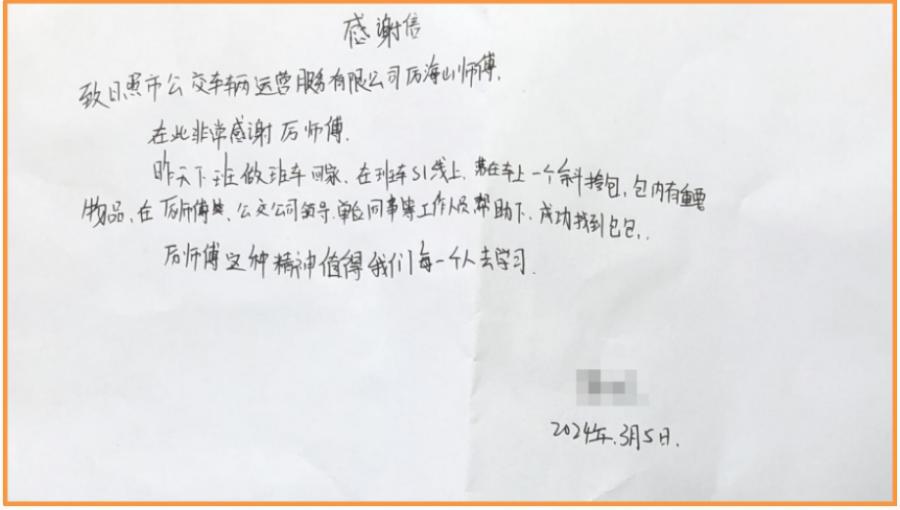 感谢信
致日照市公交车辆运营服务有限公司厉海山师傅.
在此非常感谢厉师傅.
昨天下班做班车回家、在班车S1线上、落在车上一个斜挎包,包内有重要
物品、在厉师傅、公交公司领导、单位同事等工作人员帮助下、成功找到包包..
厉师傅这种精神值得我们每一个人去学习.
2024年.3月5日.